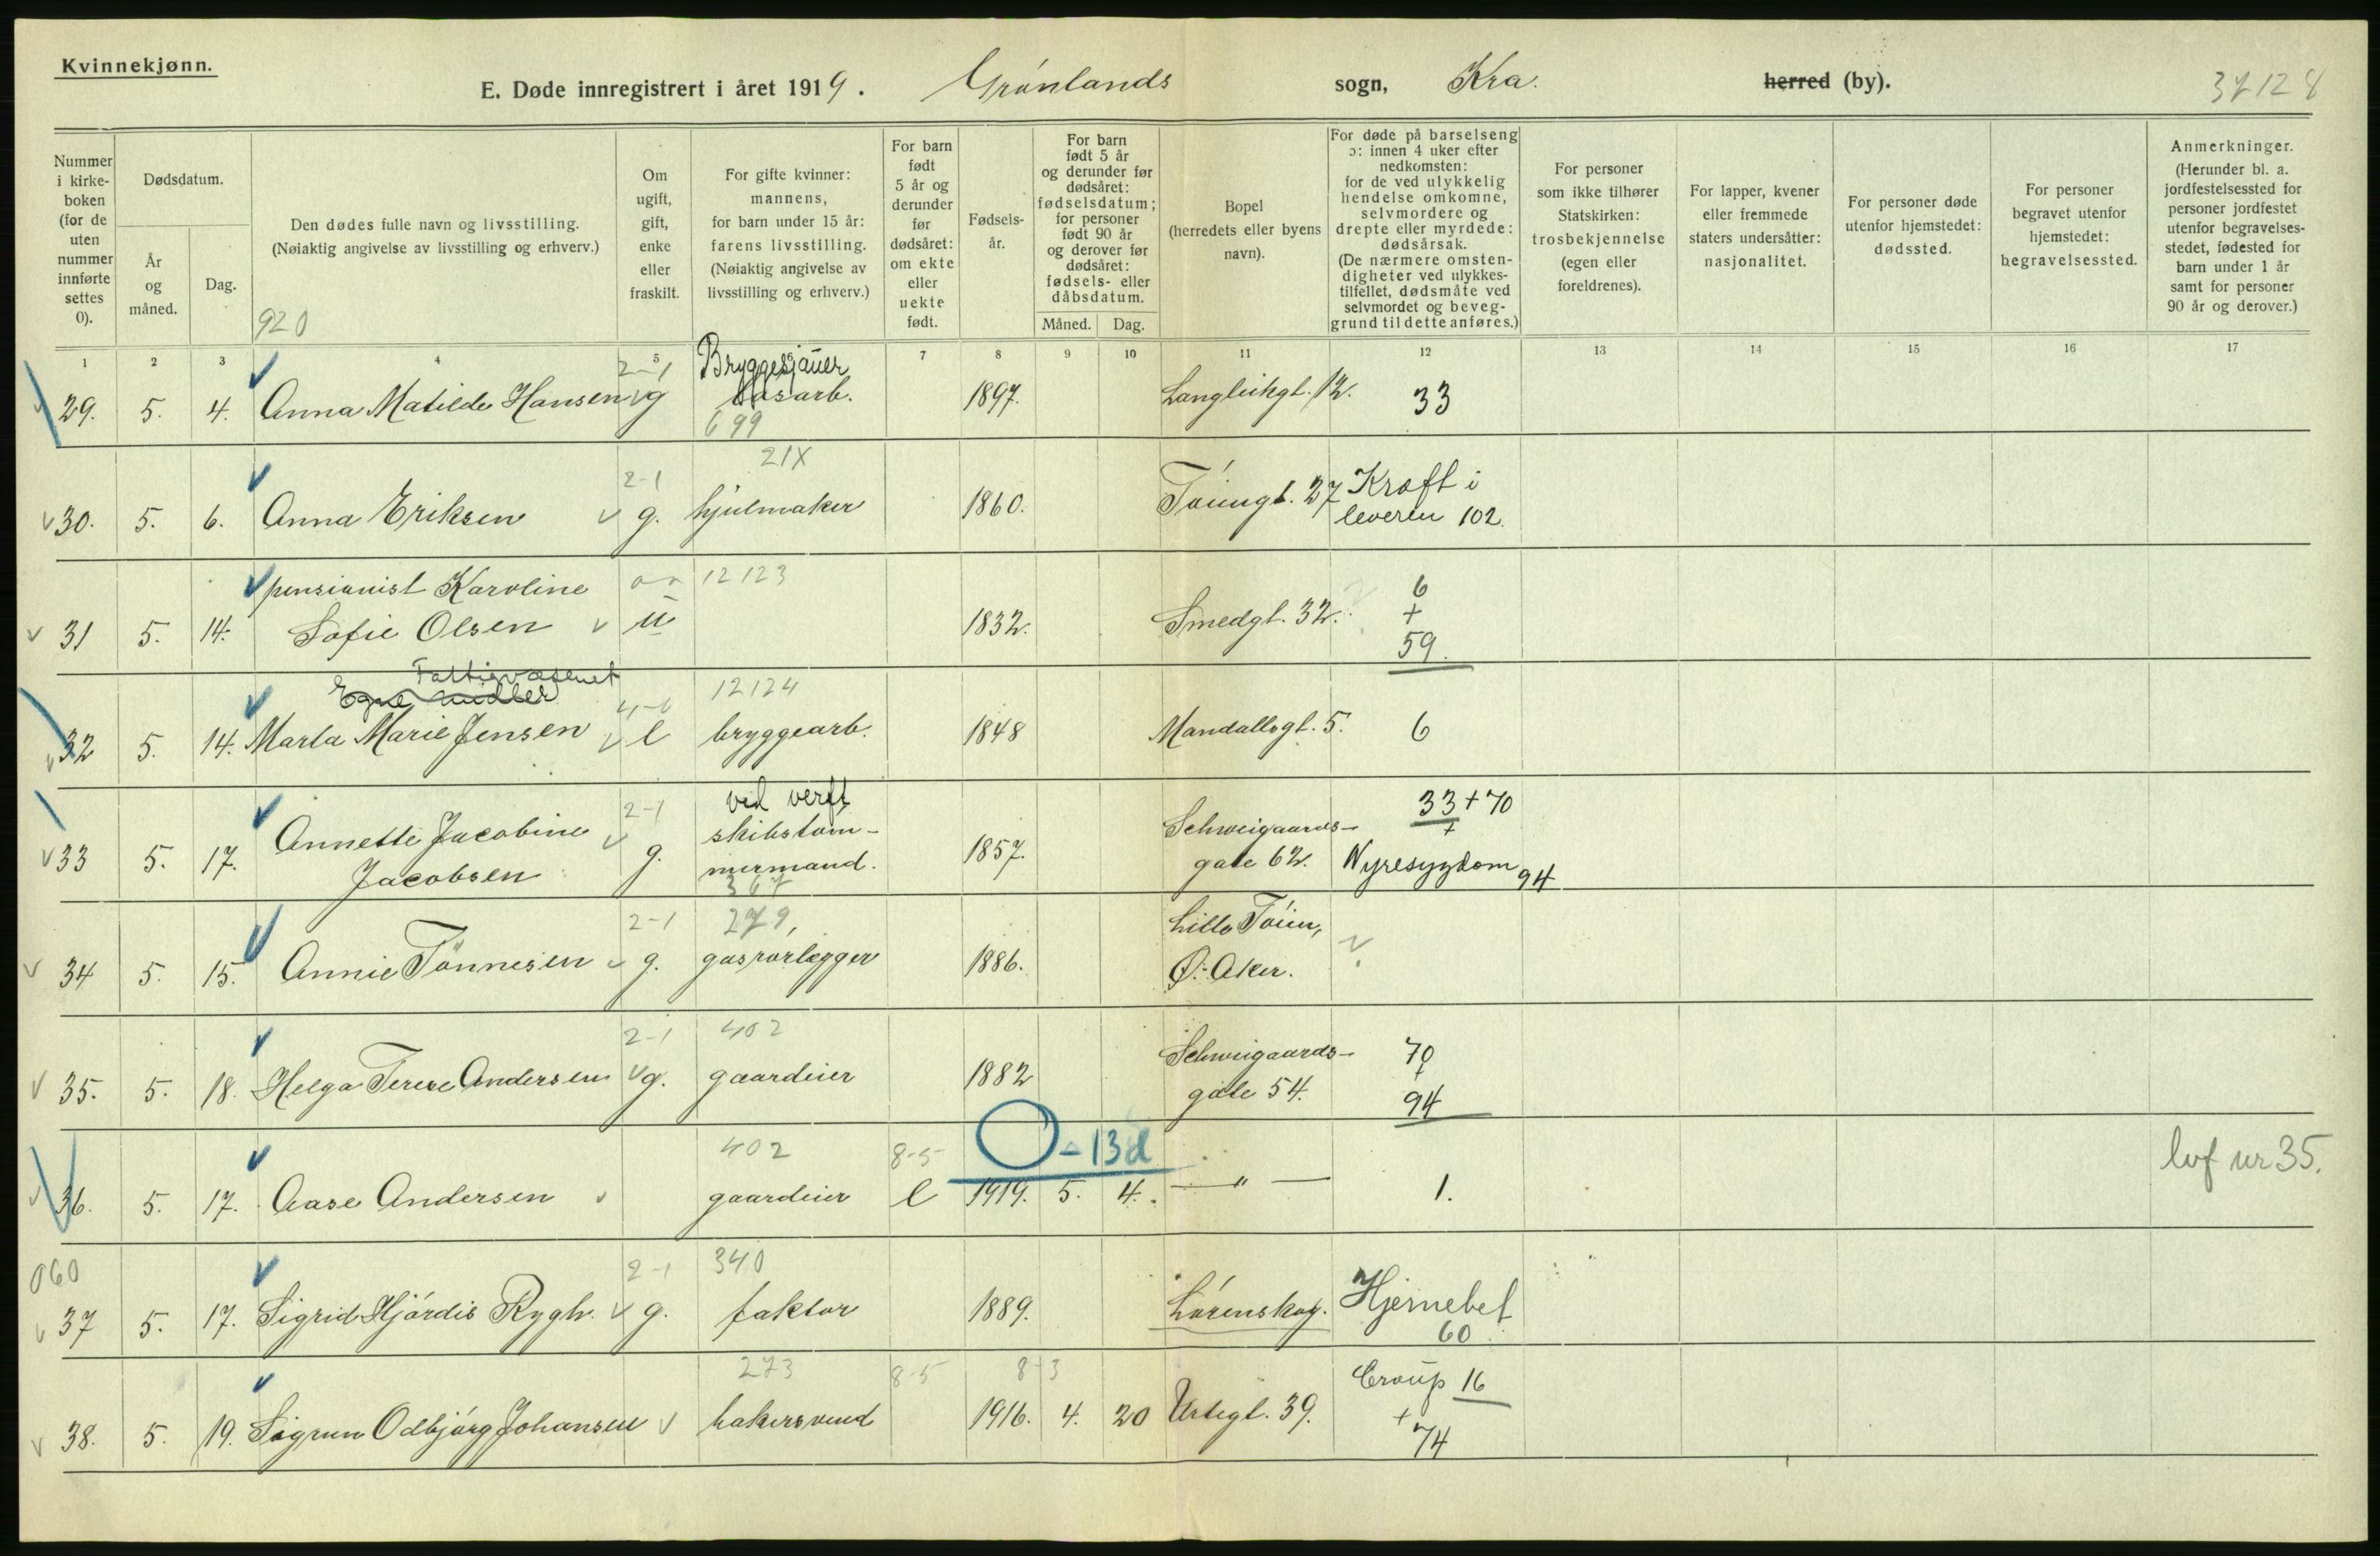 Kvinnekjønn.
E. Døde innregistrert i året 1919. Grønlands sogn, Kra. herred (by). 37128
Nummer i kirkeboken (for de uten nummer innførte settes 0).
Dødsdatum.
År og måned.
Dag.
Den dødes fulle navn og livsstilling.
(Nøiaktig angivelse av livsstilling og erhverv.)
920
Om ugift, gift, enke eller fraskilt.
For gifte kvinner: mannens, for barn under 15 år: farens livsstilling.
(Nøiaktig angivelse av livsstilling og erhverv.)
For barn født 5 år og derunder før dødsåret: om ekte eller uekte født.
Fødselsår.
For barn født 5 år og derunder før dødsåret: fødselsdatum; for personer født 90 år og derover før dødsåret: fødsels- eller dåbsdatum.
Måned. Dag.
Bopel (herredets eller byens navn).
For døde på barselseng ɔ: innen 4 uker efter nedkomsten: for de ved ulykkelig hendelse omkomne, selvmordere og drepte eller myrdede: dødsårsak.
(De nærmere omstendigheter ved ulykkestilfellet, dødsmåte ved selvmordet og beveggrund til dette anføres.)
For personer som ikke tilhører Statskirken: trosbekjennelse (egen eller foreldrenes).
For lapper, kvener eller fremmede staters undersåtter: nasjonalitet.
For personer døde utenfor hjemstedet: dødssted.
For personer begravet utenfor hjemstedet: begravelsessted.
Anmerkninger.
(Herunder bl. a. jordfestelsessted for personer jordfestet utenfor begravelsesstedet, fødested for barn under 1 år samt for personer 90 år og derover.)
1 2 3 4 5 7 8 9 10 11 12 13 14 15 16 17
2-1 Bryggesjauer
29. 5. 4. Anna Matilde Hansen g gasarb. 1897. Langleikgt. 12. 33
699
2-1 21X
30. 5. 6. Anna Eriksen g. hjulmaker 1860. Tøiengt. 27 Kræft i leveren 102.
pensionist Karoline 12123 6 +
31 5. 14. Sofie Olsen u 1832. Smedgt. 32. 59.
Fattigvæsenet
Egne midler 12124
32 5. 14. Marta Marie Jensen e bryggearb. 1848 Mandallsgt. 5. 6
2-1 ved verft
Annette Jacobine skibstøm- Schweigaards- 33 + 70 +
33 5. 17. Jacobsen g. mermand. 1857. gate 62. Nyresygdom 94
367
2-1 279, Lille Tøien,
34 5. 15. Annie Tønnesen g. gasrørlægger 1886. Ø. Aker. ?
2-1 402 Schweigaards- 70 +
35. 5. 18. Helga Terese Andersen g. gaardeier 1882 gate 54. 94
402 8-5 0-13d
36. 5. 17. Aase Andersen gaardeier e 1919. 5. 4. — " — 1. lvf nr 35.
060 2-1 340
37 5. 17. Sigrid Hjørdis Rygh. g. faktor 1889. Lørenskog. Hjernebet
60
273 8-5 8 3 Croup 16 +
38. 5. 19. Sigrun Odbjørg Johansen bakersvend 1916. 4. 20 Urtegt. 39. 74